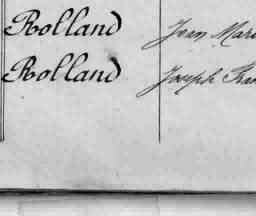 Rolland Jean Mari
Rolland Joseph Fran